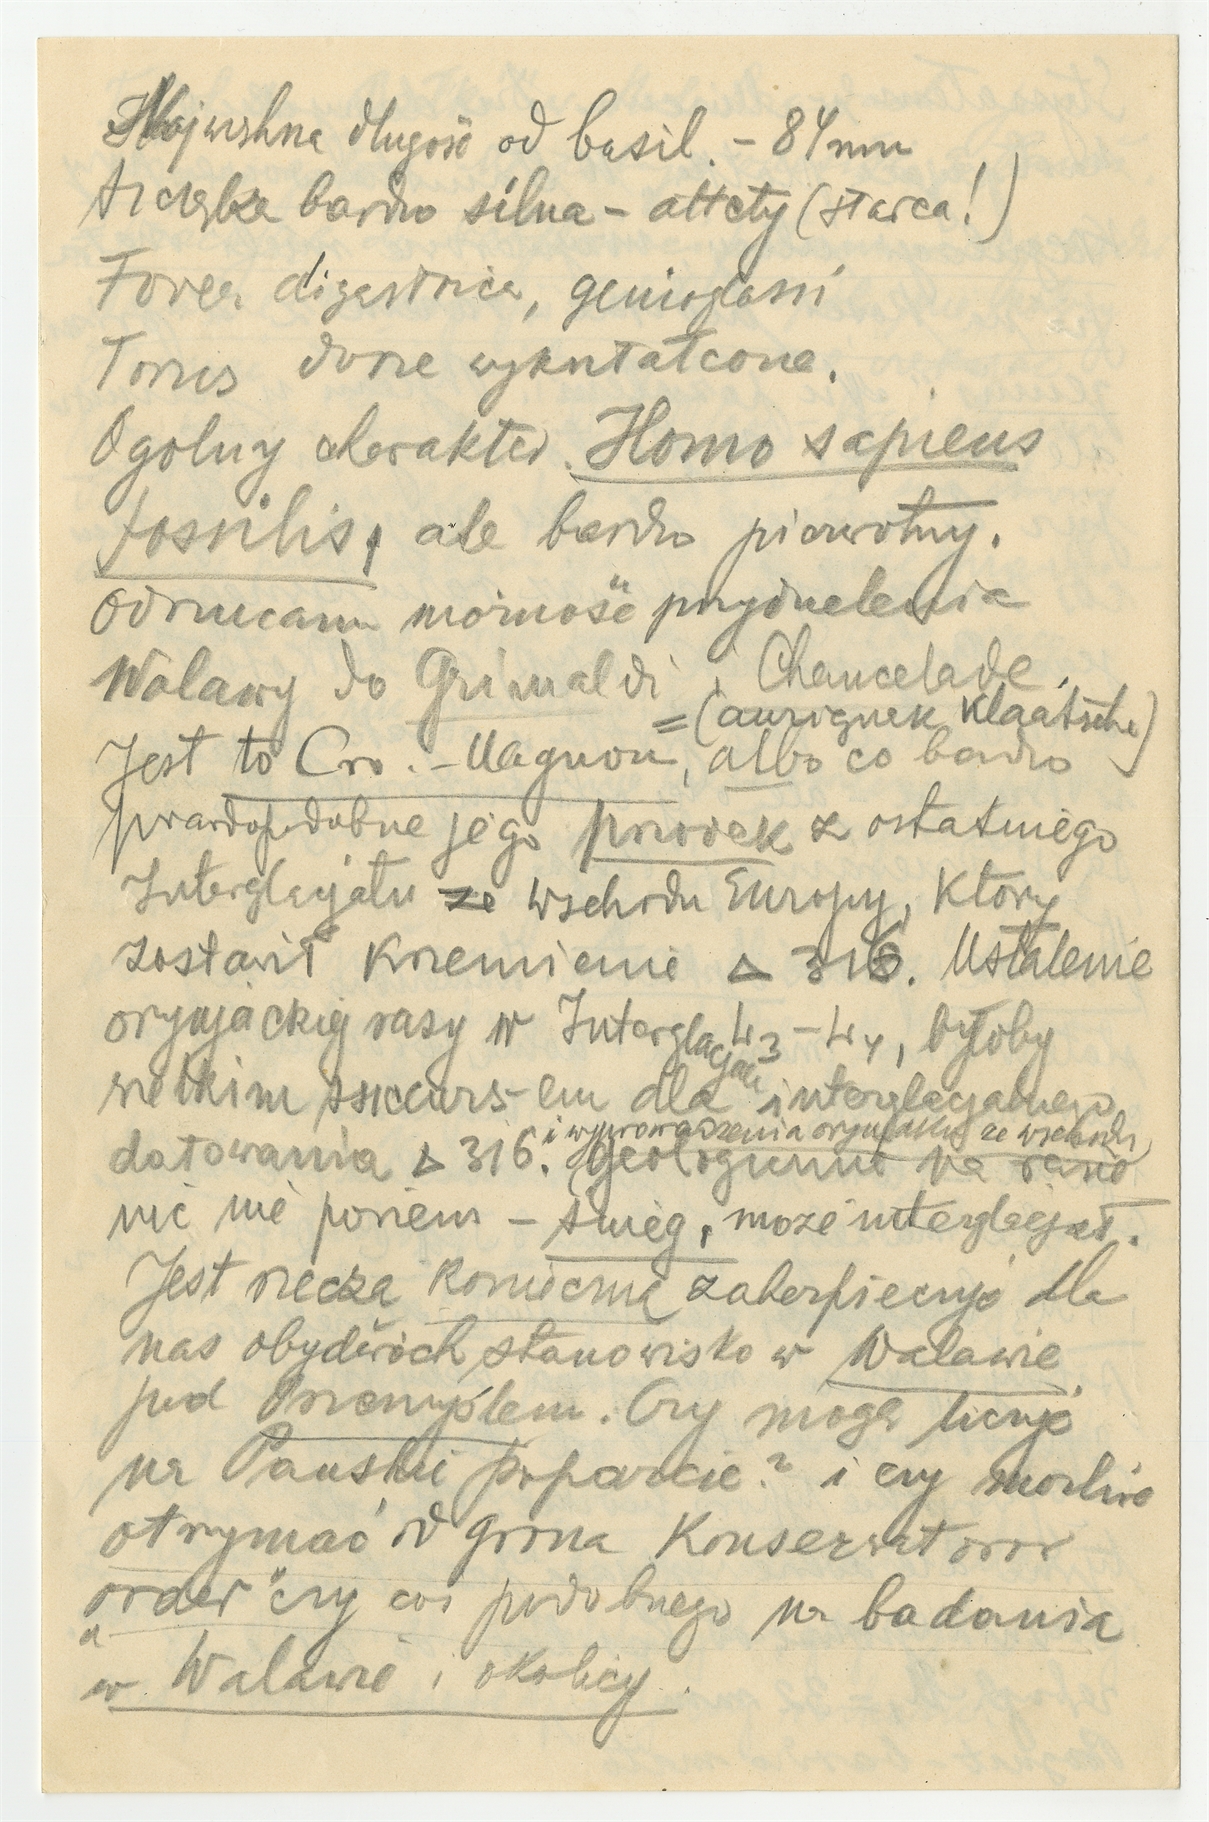 Największa długość od basil. – 84 mm
Szczęka bardzo silna – atlety (starca!)
Fovea digastrica, genioglossi
Torus dobrze wykształcone.
Ogolny charakter Homo sapiens
fossilis, ale bardzo pierwotny.
Odrzucam możność przydzielenia
Walawy do Grimaldi i Chancelade.
=(aurignak Klaatscha)
Jest to Cro.-Magnon, albo co bardzo
prawdopodobne jego przodek z ostatniego
Interglacjału ze wschodu Europy, który
zostawił krzemienie △ 316. Ustalenie
oryniackiej rasy w Interglacjale L3 – L4, byłoby
wielkim succurs-em dla interglacjalnego
i wyprowadzenia oryniaku ze wschodu
datowania △ 316. Geologicznie na razie
nic nie powiem – śnieg, może interglacjał.
Jest rzeczą konieczną zabezpieczyć dla
nas obydwóch stanowisko w Walawie
pod Przemyślem. Czy mogę liczyć
na Pańskie poparcie? i czy możliwe
otrzymać od grona Konserwatorów
„order" czy coś podobnego na badania
w Walawie i okolicy.